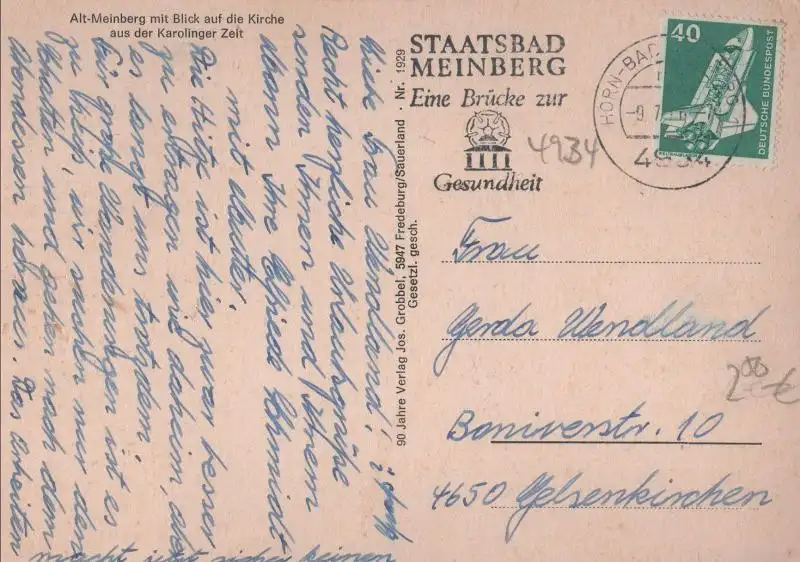 Alt-Meinberg mit Blick auf die Kirche
aus der Karolinger Zeit
Liebe Frau Wendland!
Recht herzliche Urlaubsgrüße
senden Ihnen und Ihrem
Mann Ihre Elfriede Schmidt
mit Mutter.
Die Hitze ist hier zwar besser
zu ertragen und daheim, aber
es
trotzdem.
Für große Wanderungen ist es
zu heiß, wir suchen nur den
Schatten, und gehen nach dem
Abendessen heraus. Das Arbeiten
macht jetzt sicher keinen
90 Jahre Verlag Jos. Grobbel, 5947 Fredeburg/Sauerland · Nr. 1929
Gesetzl. gesch.
STAATSBAD
MEINBERG
Eine Brücke zur
Gesundheit
HORN-BAD
-9.7.
4934
4934
40
DEUTSCHE BUNDESPOST
Frau
Gerda Wendland
Boniverstr. 10
4650 Gelsenkirchen
200 €